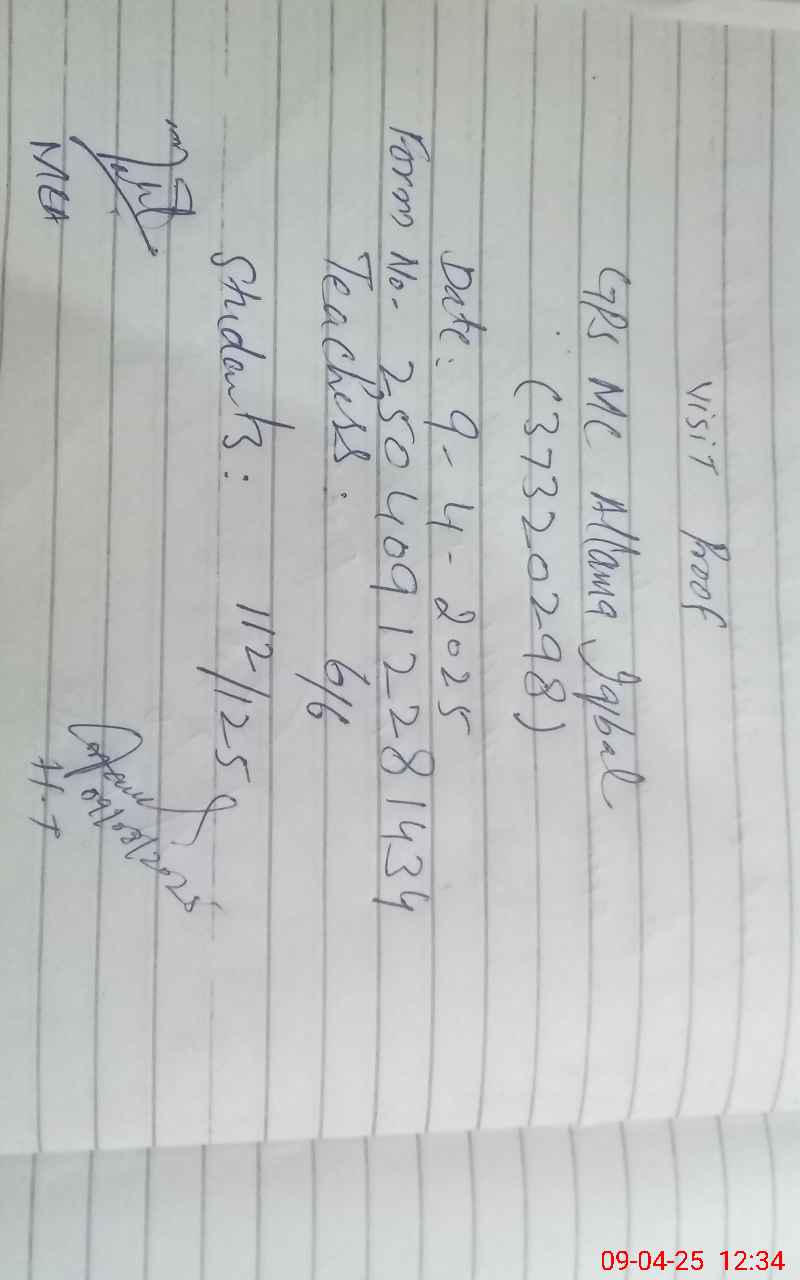 Visit Proof
GPS MC Allama Iqbal
(37320298)
Date: 9-4-2025
Form No. 25040912281434
Teachers: 6/6
Students: 112/125
MEA
H.T
09-04-25 12:34